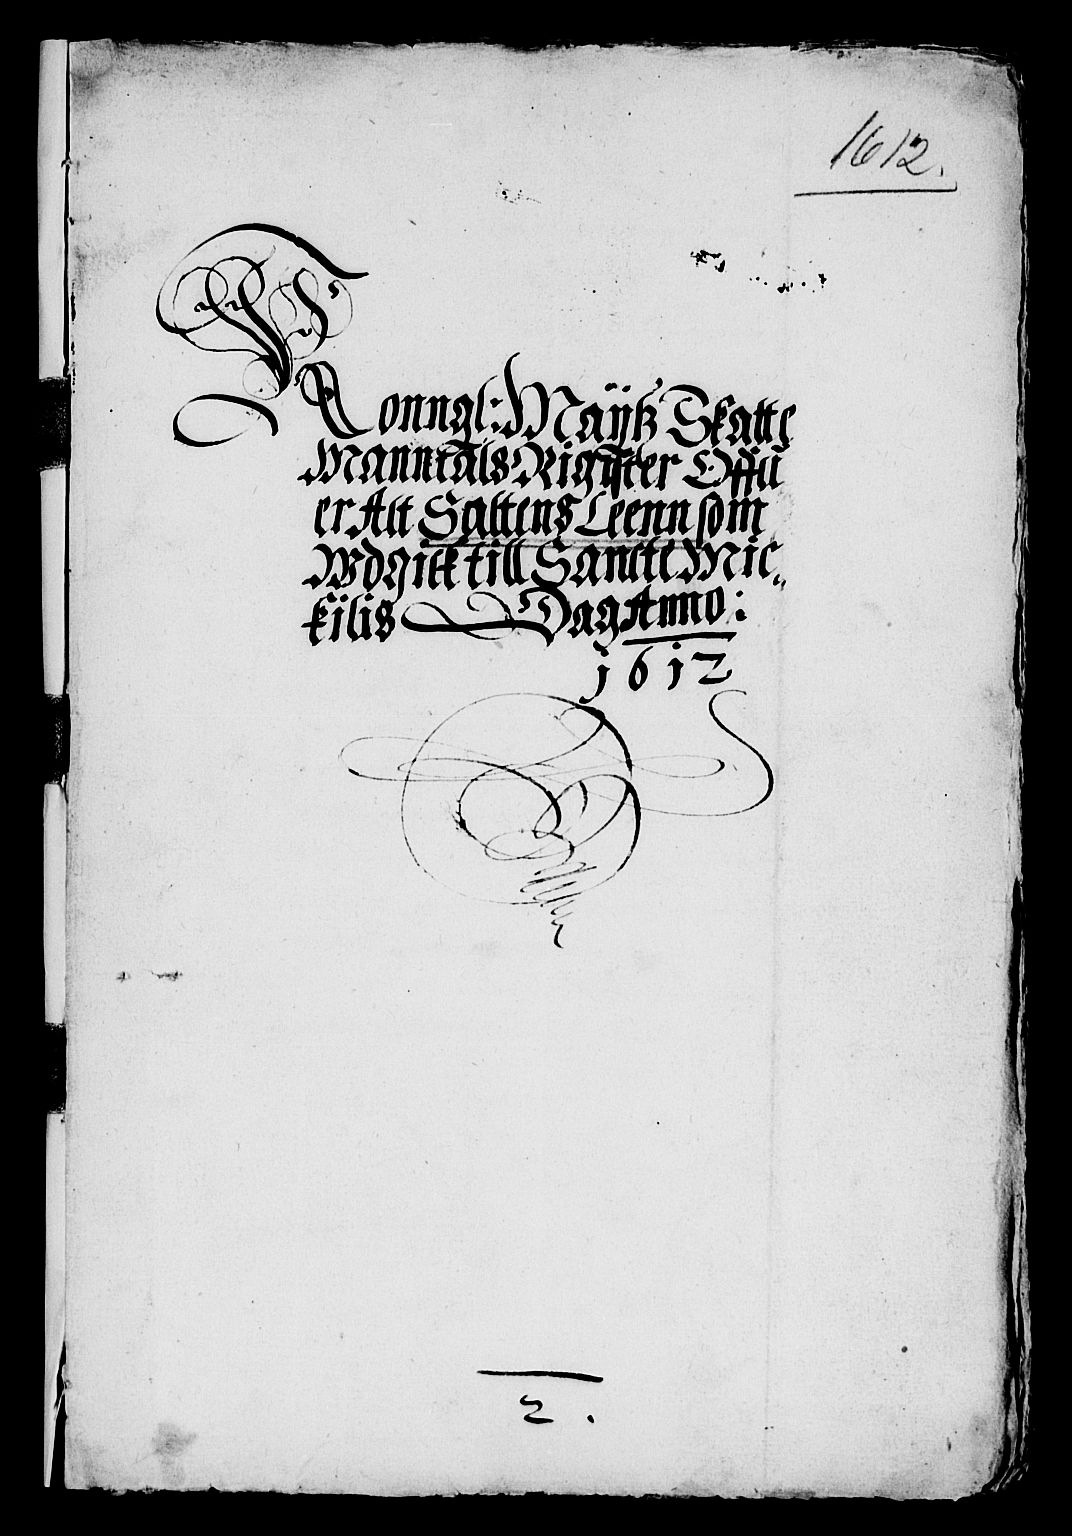 1612.
Konngl: Maÿtz Skatte
Manntals Rigister Offu
er Alt Saltens Leenn som
Wdgick till Sancte Mic„
kilis Dag Anno:
1612
2.